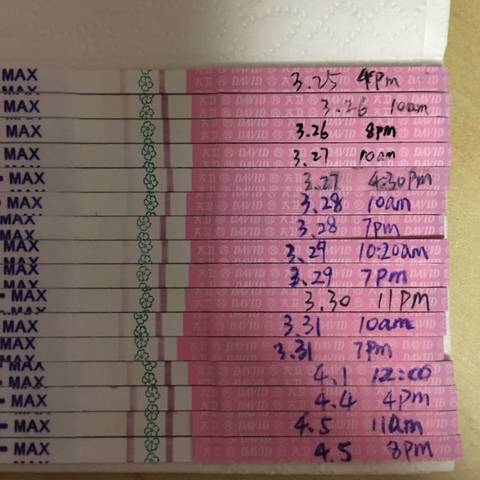 MAX 大卫 DAVID 3.25 4pm
MAX 大卫 DAVID 3.26 10am
MAX 大卫 DAVID 3.26 8pm
MAX 大卫 DAVID 3.27 10am
MAX 大卫 DAVID 3.27 4:30pm
MAX 大卫 DAVID 3.28 10am
MAX 大卫 DAVID 3.28 7pm
MAX 大卫 DAVID 3.29 10:20am
MAX 大卫 DAVID 3.29 7pm
MAX 大卫 DAVID 3.30 11pm
MAX 大卫 DAVID 3.31 10am
MAX 大卫 DAVID 3.31 7pm
MAX 大卫 DAVID 4.1 12:00
MAX 大卫 DAVID 4.4 4pm
MAX 大卫 DAVID 4.5 11am
MAX 大卫 DAVID 4.5 8pm